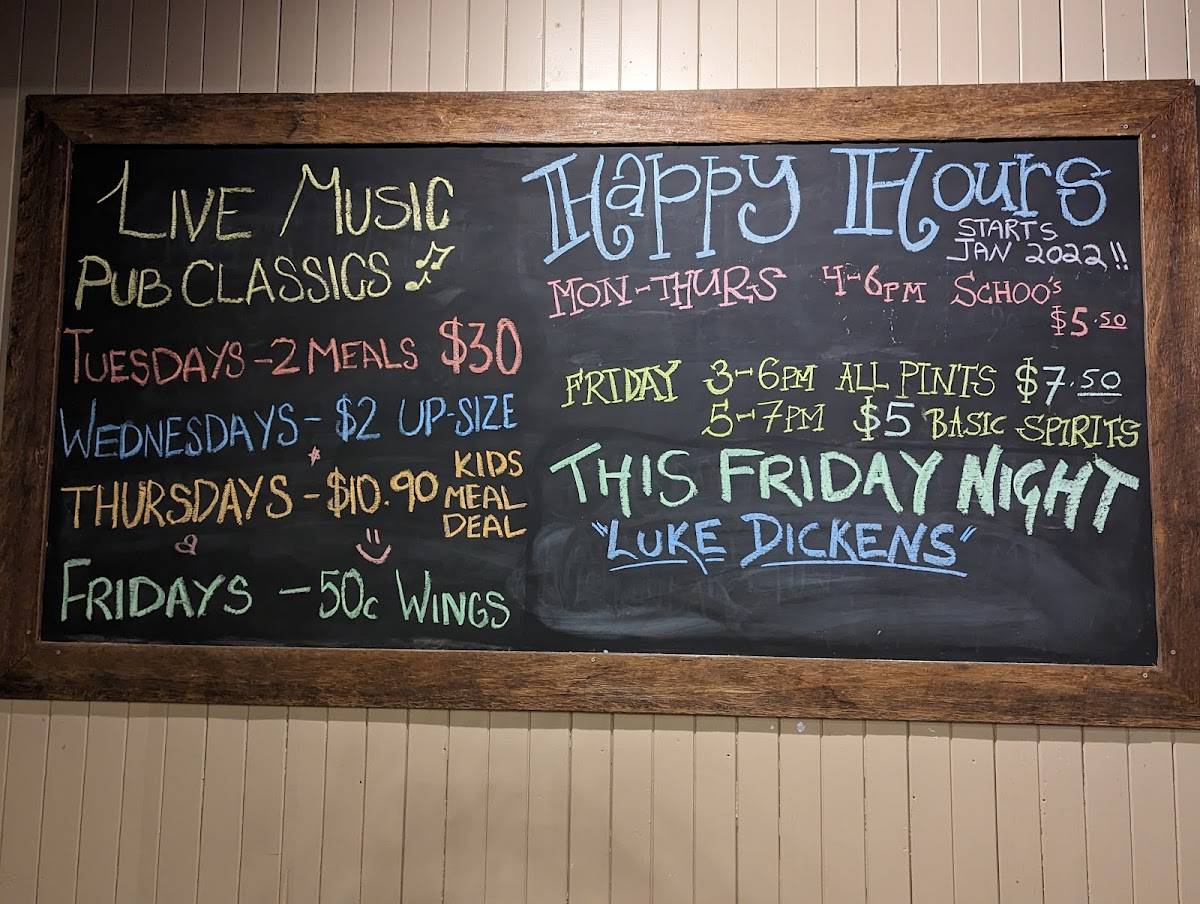 LIVE MUSIC
PUB CLASSICS
TUESDAYS - 2 MEALS $30
WEDNESDAYS - $2 UP-SIZE
THURSDAYS - $10.90 KIDS
MEAL
DEAL
FRIDAYS - 50c WINGS
HAPPY HOURS
STARTS
JAN 2022!!
MON-THURS 4-6PM SCHOO's
$5.50
FRIDAY 3-6PM ALL PINTS $7.50
5-7PM $5 BASIC SPIRITS
THIS FRIDAY NIGHT
"LUKE DICKENS"